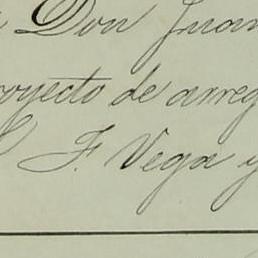 Don Juan
royecto de arreg
F. Vega y